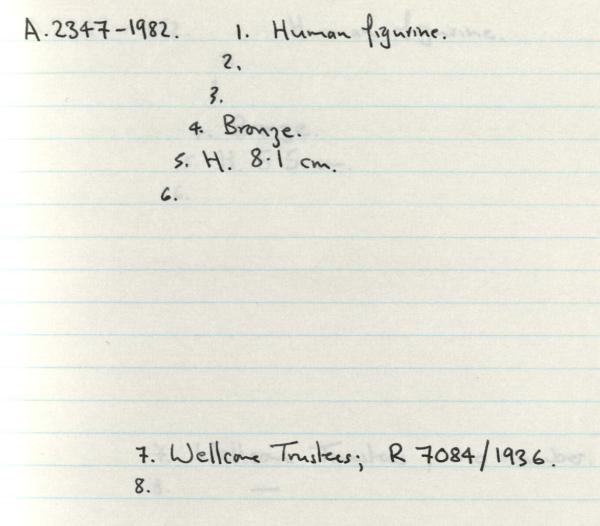 A.2347-1982. 1. Human figurine.
2.
3.
4. Bronze.
5. H. 8·1 cm.
6.
7. Wellcome Trustees; R 7084/1936.
8.